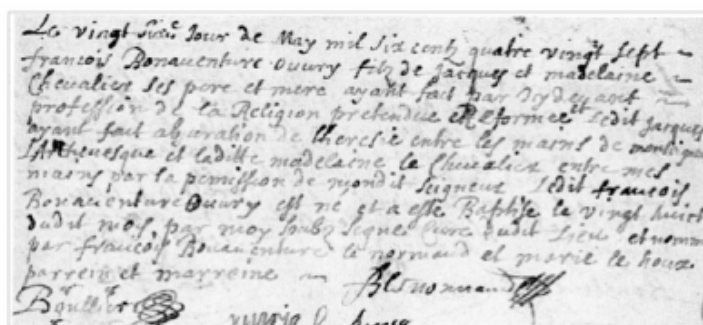 Le vingt sixe Jour de May mil six centz quatre vingt sept
francois Bonaventure ouvry filz de Jacques et madelaine
Chevalier ses pere et mere ayant fait par Cydevant
profession de la Religion pretendue et Reformee ledit Jacques
ayant fait abjuration de lheresie entre les mains de
LArchevesque et laditte madelaine le Chevalier entre mes
mains par la permission de mondit seigneur ledit francois
Bonaventure ouvry est ne et a este Baptise le vingt huict
dudit mois, par moy soubz signe Cure dudit Lieu et nomme
par francois Bonaventure le normand et marie le houx
parrein et marreine